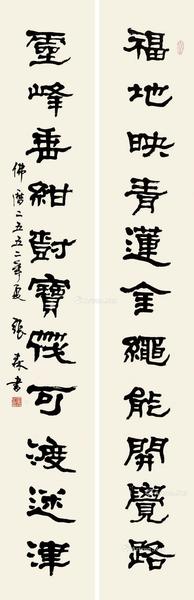 福地映青蓮金繩能開覺路
靈峰垂紺尌寶筏可渡迷津
佛曆二五五二年夏 張森書